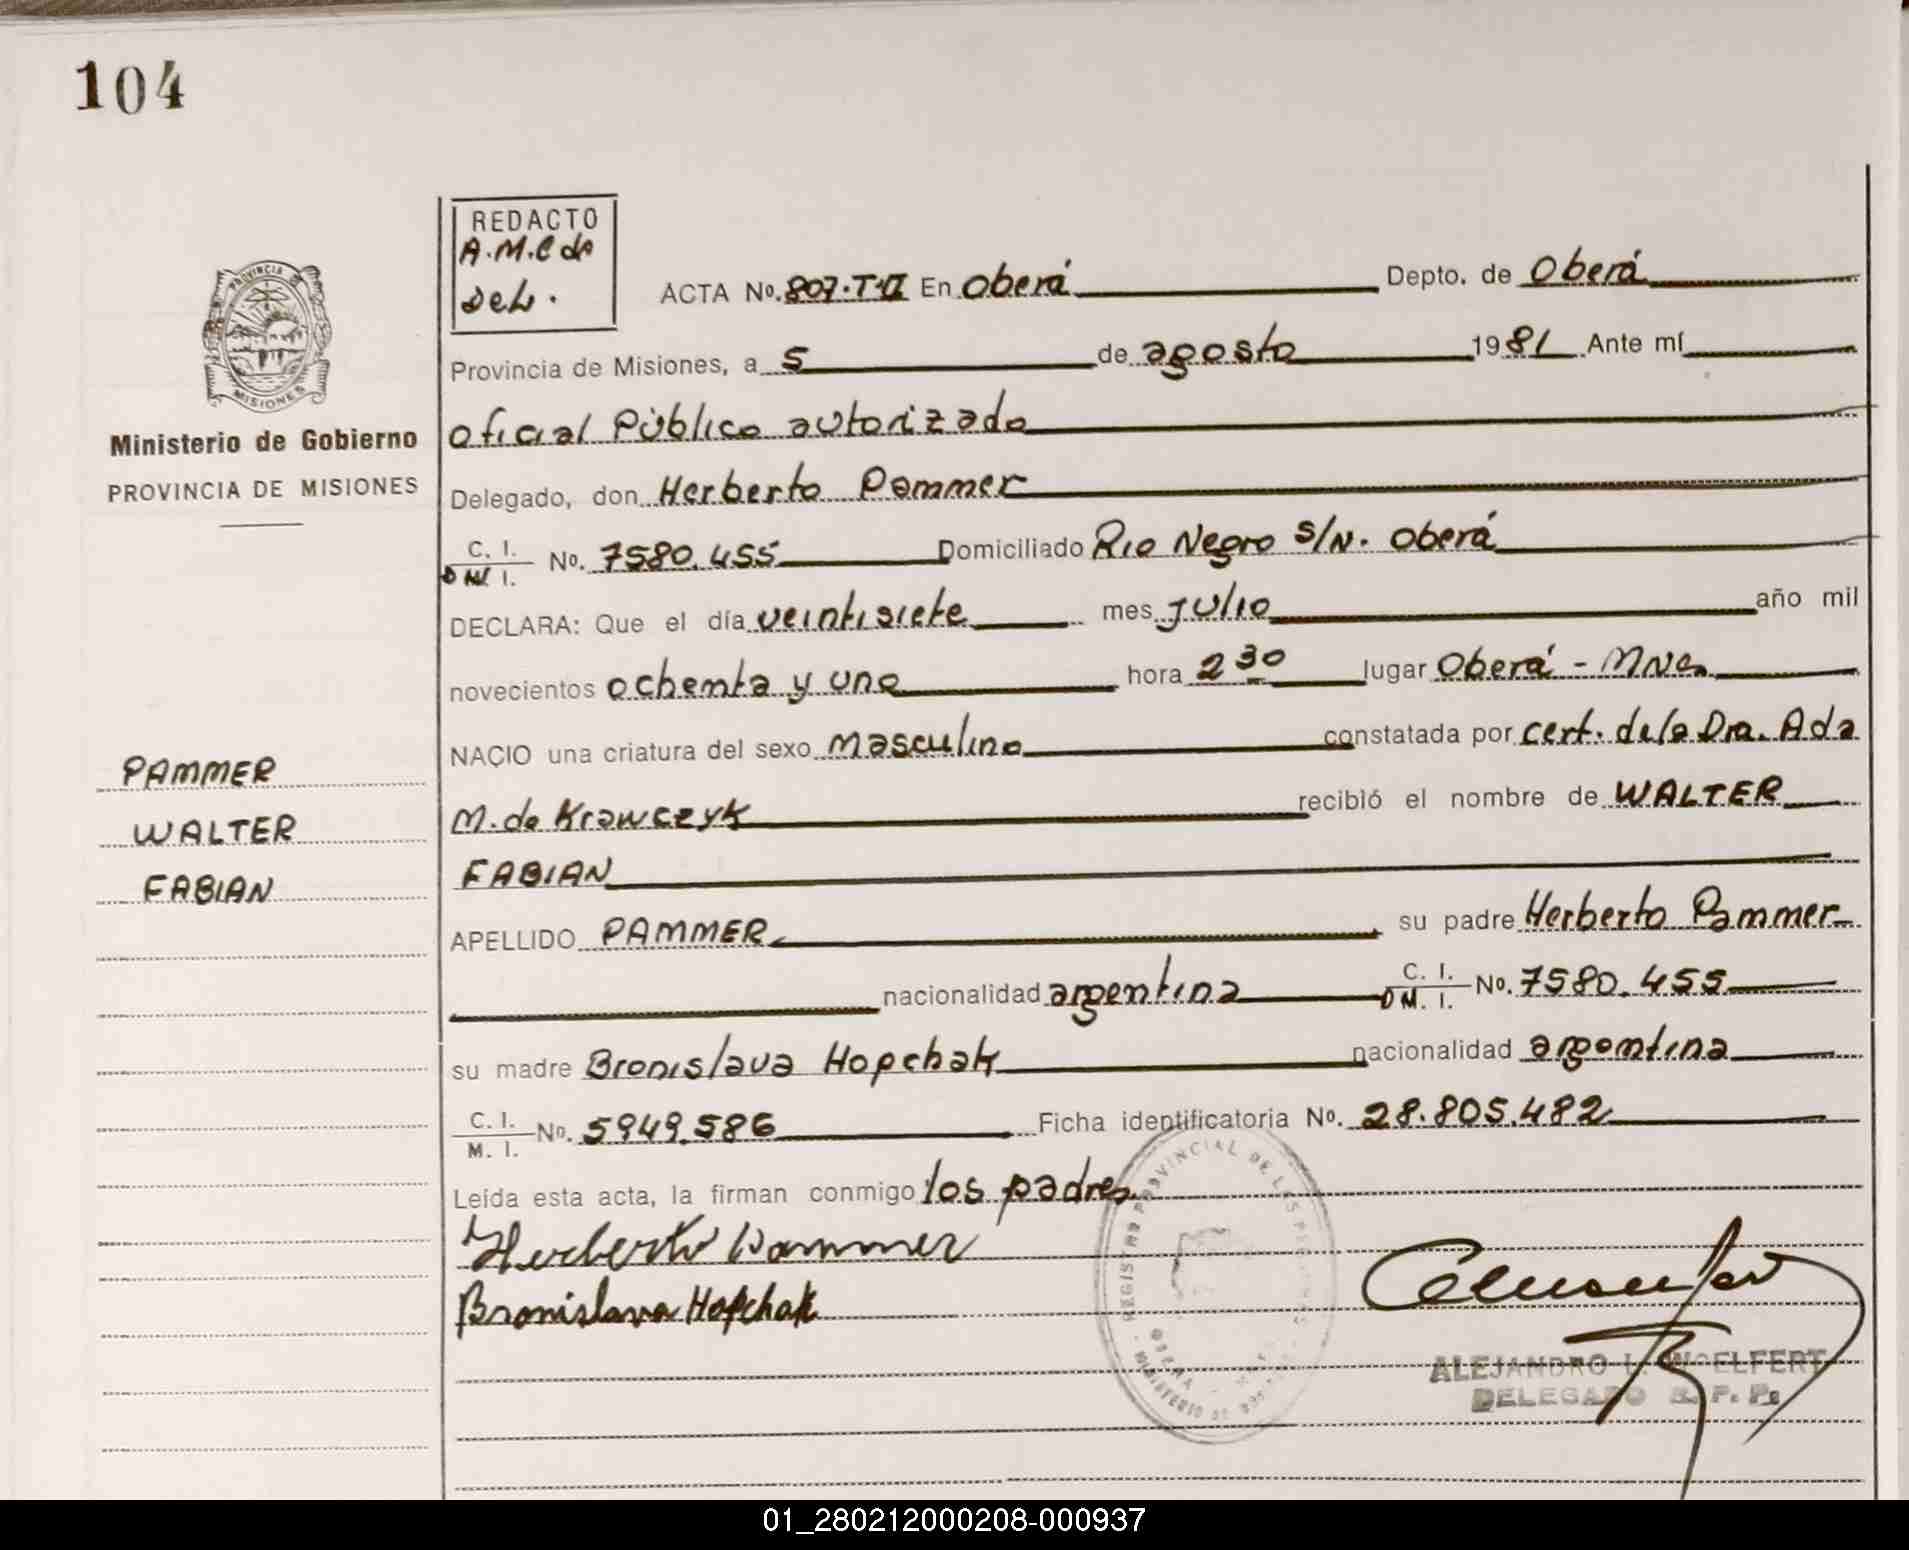 104
REDACTO
A.M.C de
Del.
PROVINCIA DE
MISIONES
Ministerio de Gobierno
PROVINCIA DE MISIONES
ACTA No. 807.T.II En Oberá Depto. de Oberá
Provincia de Misiones, a 5 de agosto 1981 Ante mí
Oficial Público autorizado
Delegado, don Herberto Pammer
C. I.
D M I. No. 7580.455 Domiciliado Rio Negro s/N. Oberá
DECLARA: Que el día veintisiete mes Julio año mil
novecientos ochenta y uno hora 2 30 lugar Oberá - Mnes
NACIO una criatura del sexo masculino constatada por cert. de la Dra. Ada
M. de Krawczyk recibió el nombre de WALTER
FABIAN
APELLIDO PAMMER su padre Herberto Pammer
nacionalidad argentina C. I.
D M. I. No. 7580.455
su madre Bronislava Hopchak nacionalidad argentina
C. I.
M. I. No. 5949.586 Ficha identificatoria No. 28.805.482
Leída esta acta, la firman conmigo los padres
Herberto Pammer
Bronislava Hopchak
PAMMER
WALTER
FABIAN
REGISTRO PROVINCIAL DE LAS PERSONAS
OBERA
ALEJANDRO L. WOELFERT
DELEGADO R. P. P.
01_280212000208-000937